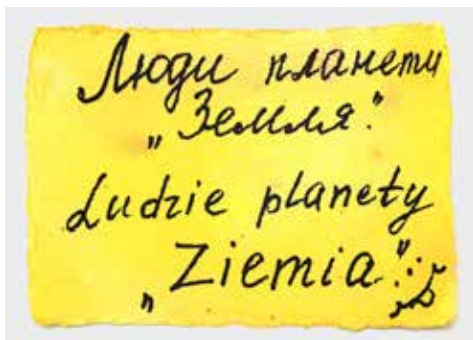 Люди планети
„Земля."
Ludzie planety
„Ziemia".